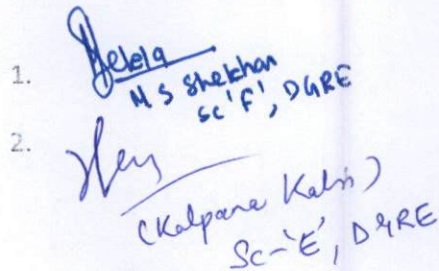 1.
M S Shekhar
Sc 'F', DGRE
2.
(Kalpana Kalsi)
Sc-'E', DGRE